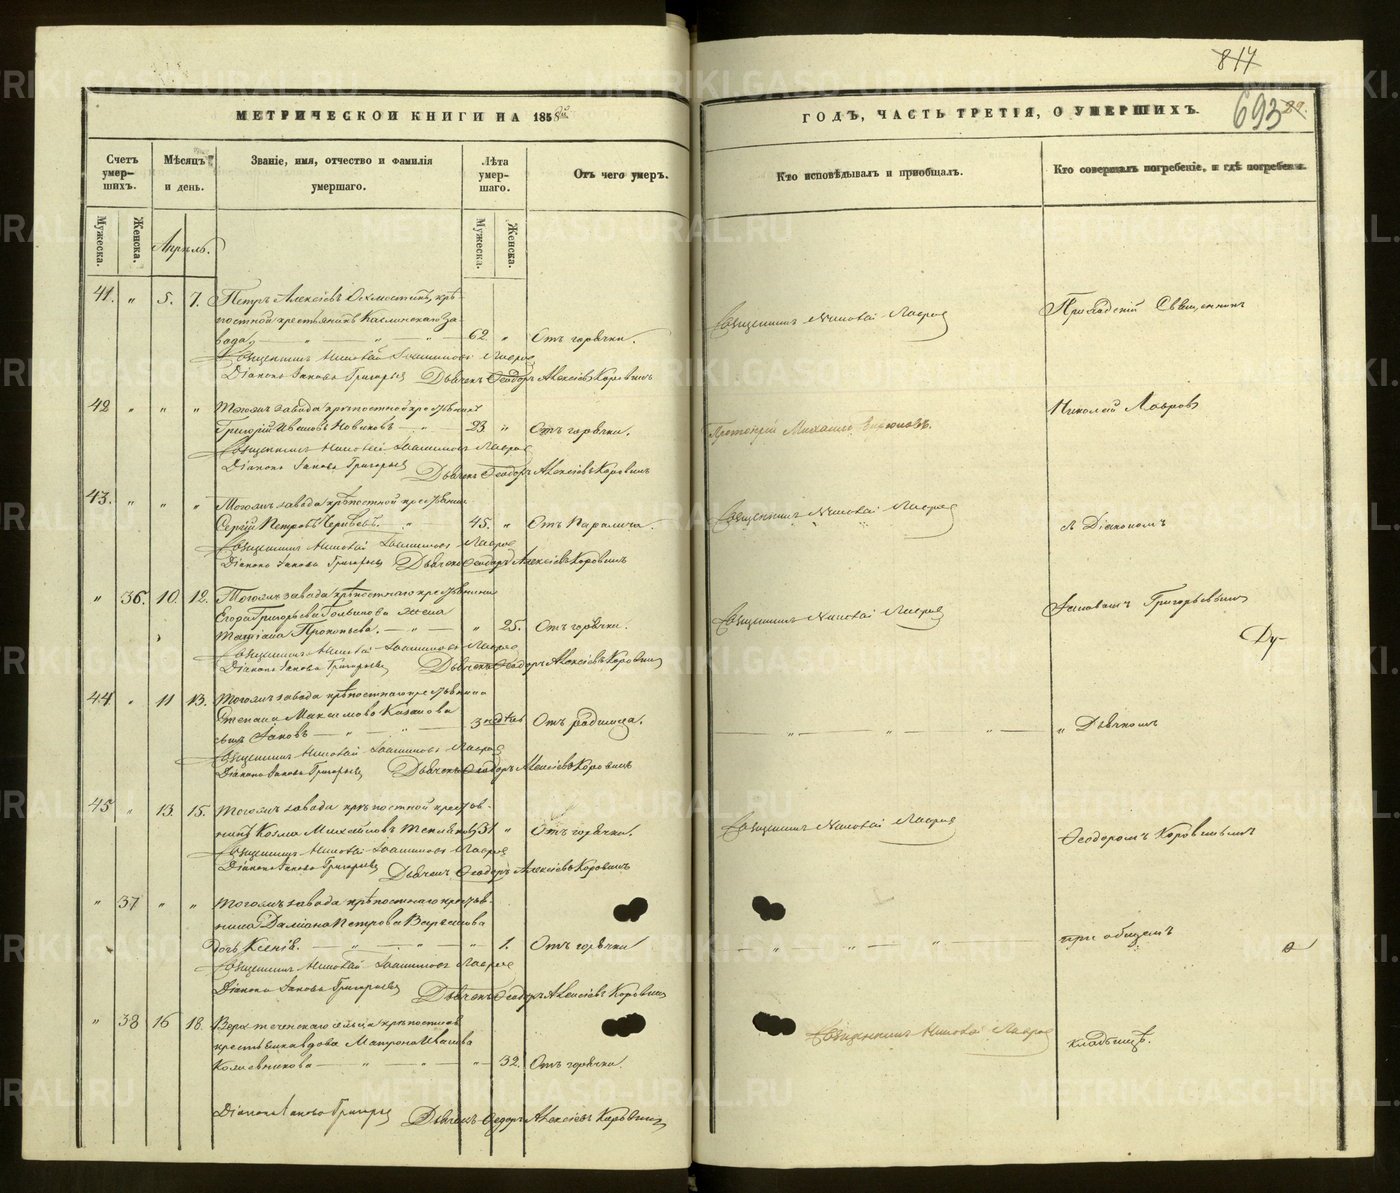 817
693
89.
МЕТРИЧЕСКОЙ КНИГИ НА 185
ГОДЪ, ЧАСТЬ ТРЕТІЯ, О УМЕРШИХЪ.
Счетъ умер-шихъ.
Мѣсяцъ и день.
Званіе, имя, отчество и фамилія умершаго.
Лѣта умер-шаго.
Отъ чего умеръ.
Кто исповѣдывалъ и пріобщалъ.
Кто совершалъ погребеніе, и гдѣ погребены.
Мужеска.
Женска.
Мужеска.
Женска.
Апрѣль.
41. " 5. 7. Петръ Алексіевъ крѣ-
постной крестьянинъ Каслинскаго За-
вода " " " 62 " Отъ горячки. Священникъ Николай Лавровъ Приходскій Священникъ
Священникъ Николай Іоанновъ Лавровъ
Діаконъ Іаковъ Григорьевъ Дьячекъ Ѳеодоръ Алексіевъ Коровинъ
42 " " " Тогожъ завода крѣпостной крестьянинъ
Григорій Ивановъ Новиковъ " 23 " Отъ горячки. Протоіерей Михаилъ Николай Лавровъ
Священникъ Николай Іоанновъ Лавровъ
Діаконъ Іаковъ Григорьевъ Дьячекъ Ѳеодоръ Алексіевъ Коровинъ
43. " " " Тогожъ завода крѣпостной крестьянинъ
Сергій Петровъ " 45. " Отъ Паралича. Священникъ Николай Лавровъ съ Діакономъ
Священникъ Николай Іоанновъ Лавровъ
Діаконъ Іаковъ Григорьевъ Дьячекъ Ѳеодоръ Алексіевъ Коровинъ
" 36. 10. 12. Тогожъ завода крѣпостнаго крестьянина
Егора Григорьева жена
Татіана Прокопьева. " " 25. Отъ горячки. Священникъ Николай Лавровъ Іаковомъ Григорьевымъ
Ду-
Священникъ Николай Іоанновъ Лавровъ
Діаконъ Іаковъ Григорьевъ Дьячекъ Ѳеодоръ Алексіевъ Коровинъ
44. " 11 13. Тогожъ завода крѣпостнаго крестьянина
Степана Максимова Казакова
сынъ Іаковъ " " 3 недѣль Отъ родимца. " " " " Дьячкомъ
Священникъ Николай Іоанновъ Лавровъ
Діаконъ Іаковъ Григорьевъ Дьячекъ Ѳеодоръ Алексіевъ Коровинъ
45 " 13. 15. Тогожъ завода крѣпостной крестья-
нинъ Козма Михайловъ 31 " Отъ горячки. Священникъ Николай Лавровъ Ѳеодоромъ Коровинымъ
Священникъ Николай Іоанновъ Лавровъ
Діаконъ Іаковъ Григорьевъ Дьячекъ Ѳеодоръ Алексіевъ Коровинъ
" 37 " " Тогожъ завода крѣпостнаго крестья-
нина Даміана Петрова
дочь Ксенія. " " " 1. Отъ горячки " " " при общемъ
Священникъ Николай Іоанновъ Лавровъ
Діаконъ Іаковъ Григорьевъ Дьячекъ Ѳеодоръ Алексіевъ Коровинъ
" 38 16 18. крѣпостная
крестьянка вдова Матрона Иванова
" " " 32. Отъ горячки. Священникъ Николай Лавровъ кладбищѣ.
Діаконъ Іаковъ Григорьевъ Дьячекъ Ѳеодоръ Алексіевъ Коровинъ
METRIKI.GASO-URAL.RU